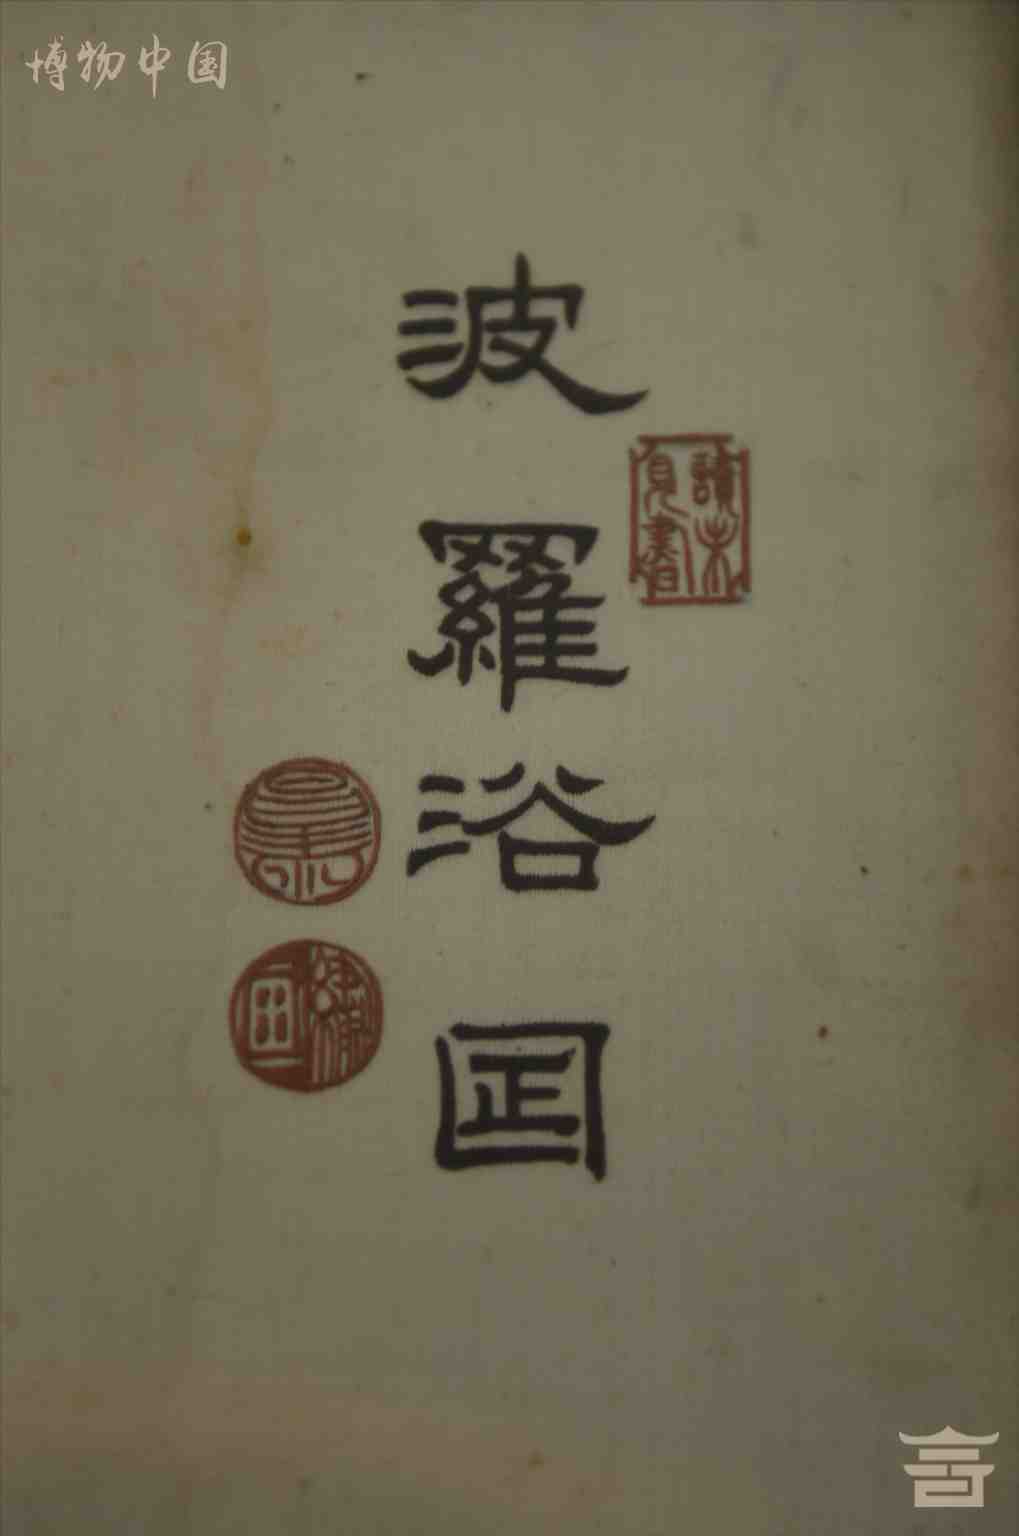 博物中国
波羅浴囸
讀未見書